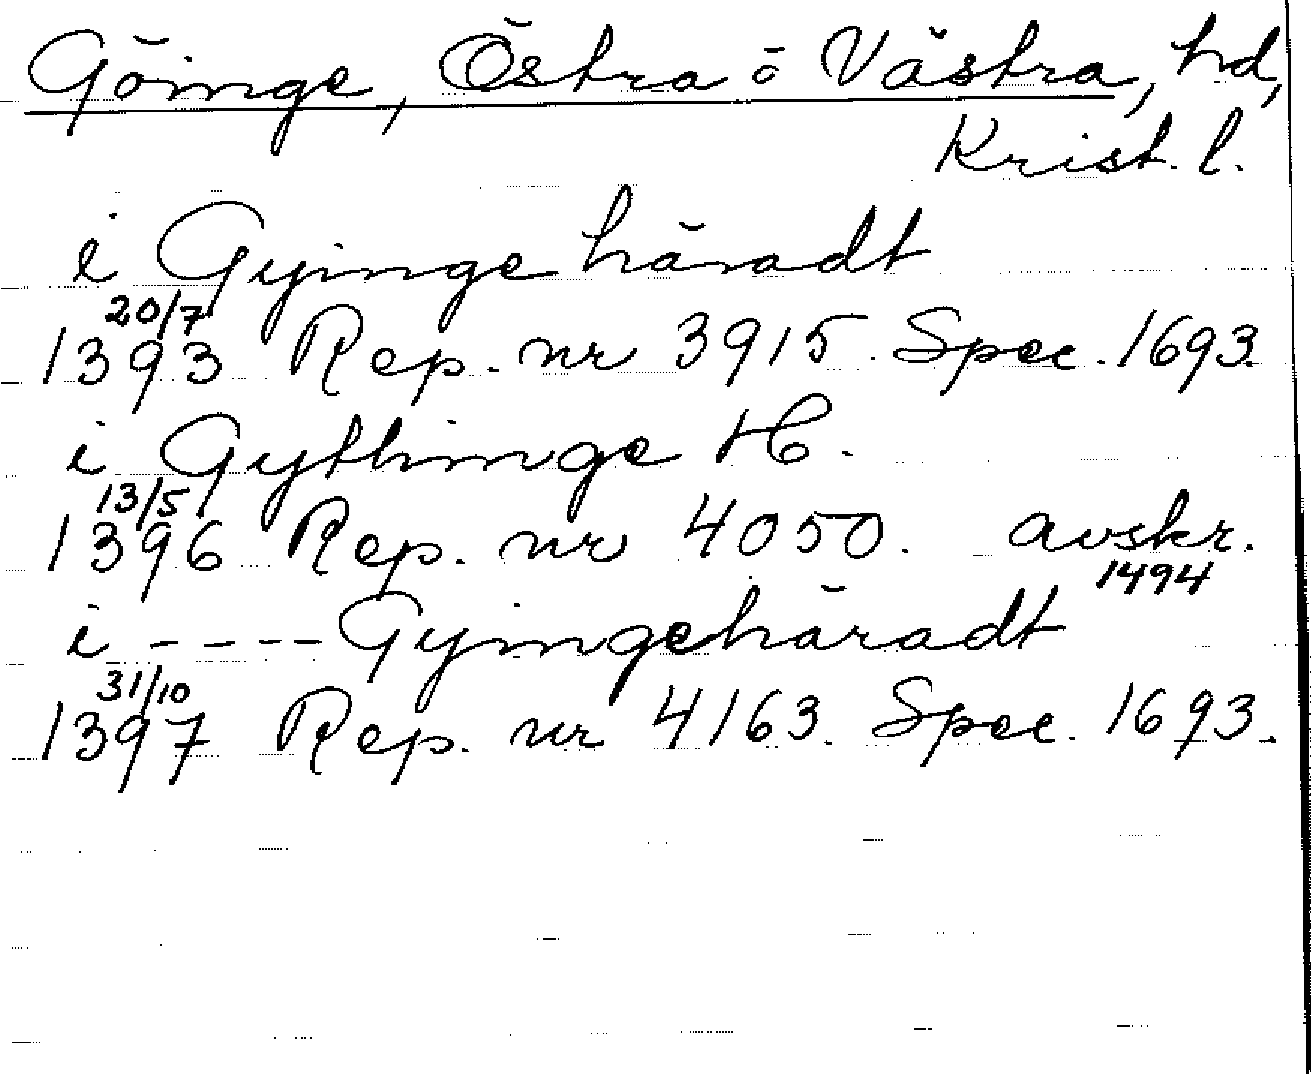 Göinge, Östra o Västra, hd,
Krist. l.
i Gyinge häradt
20/7
1393 Rep. nr 3915. Spec. 1693.
i Gythinge H.
13/5
1396 Rep. nr 4050. avskr.
1494
i - - - - Gyingehäradt
31/10
1397 Rep. nr 4163. Spec. 1693.